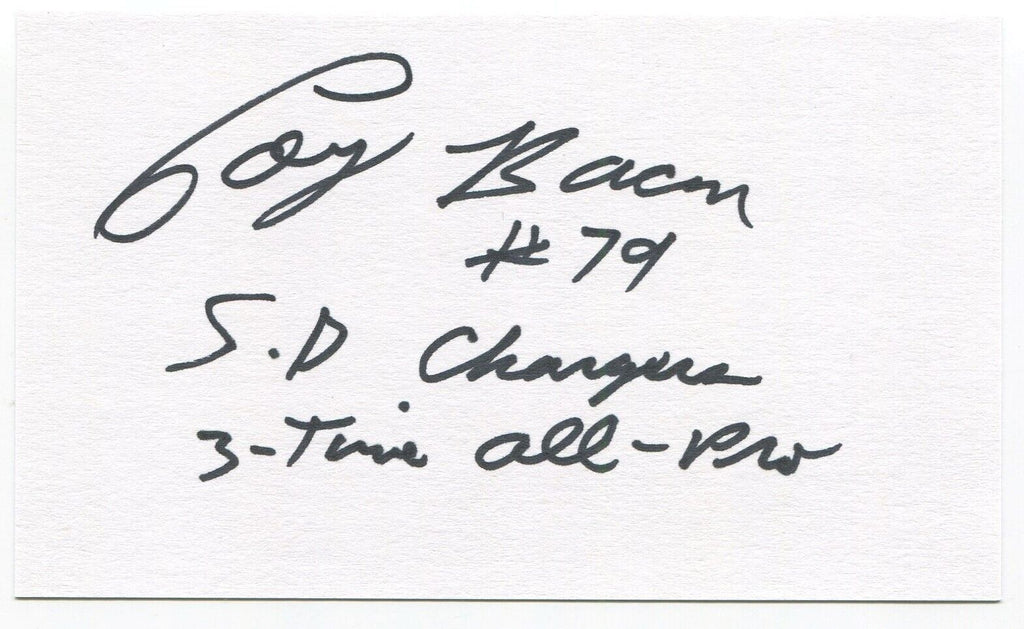 Coy Bacon
#79
S.D Chargers
3-Time All-Pro